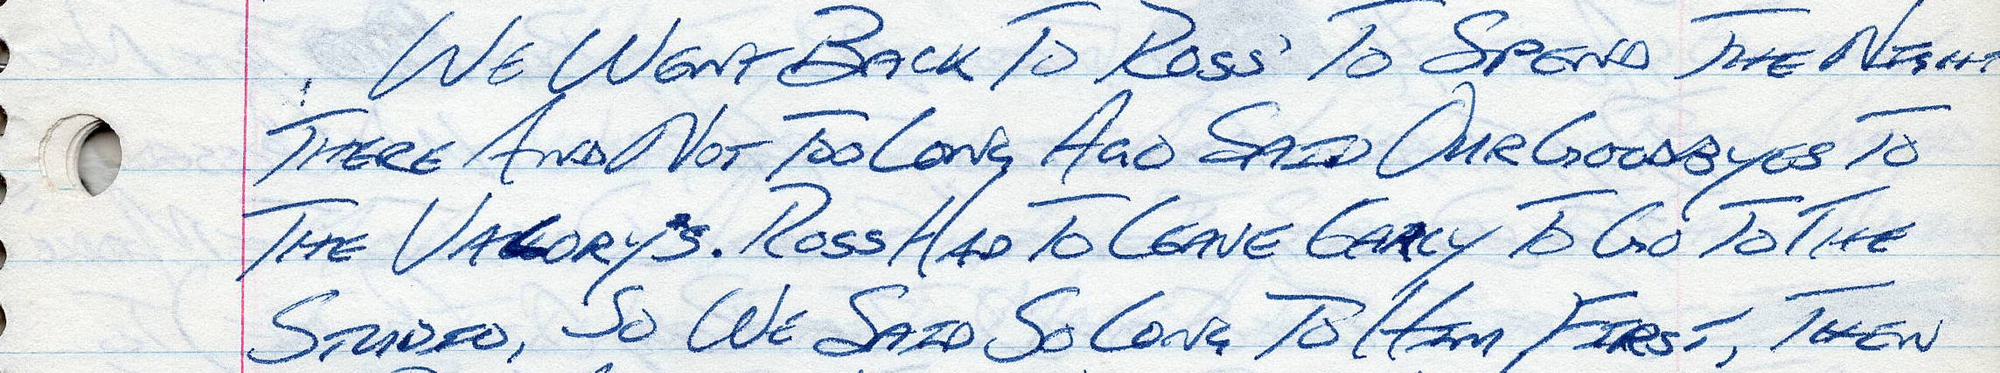 WE WENT BACK TO ROSS' TO SPEND THE NIGHT
THERE AND NOT TOO LONG AGO SAID OUR GOODBYES TO
THE VALLORY'S. ROSS HAD TO LEAVE EARLY TO GO TO THE
STUDIO, SO WE SAID SO LONG TO HIM FIRST, THEN